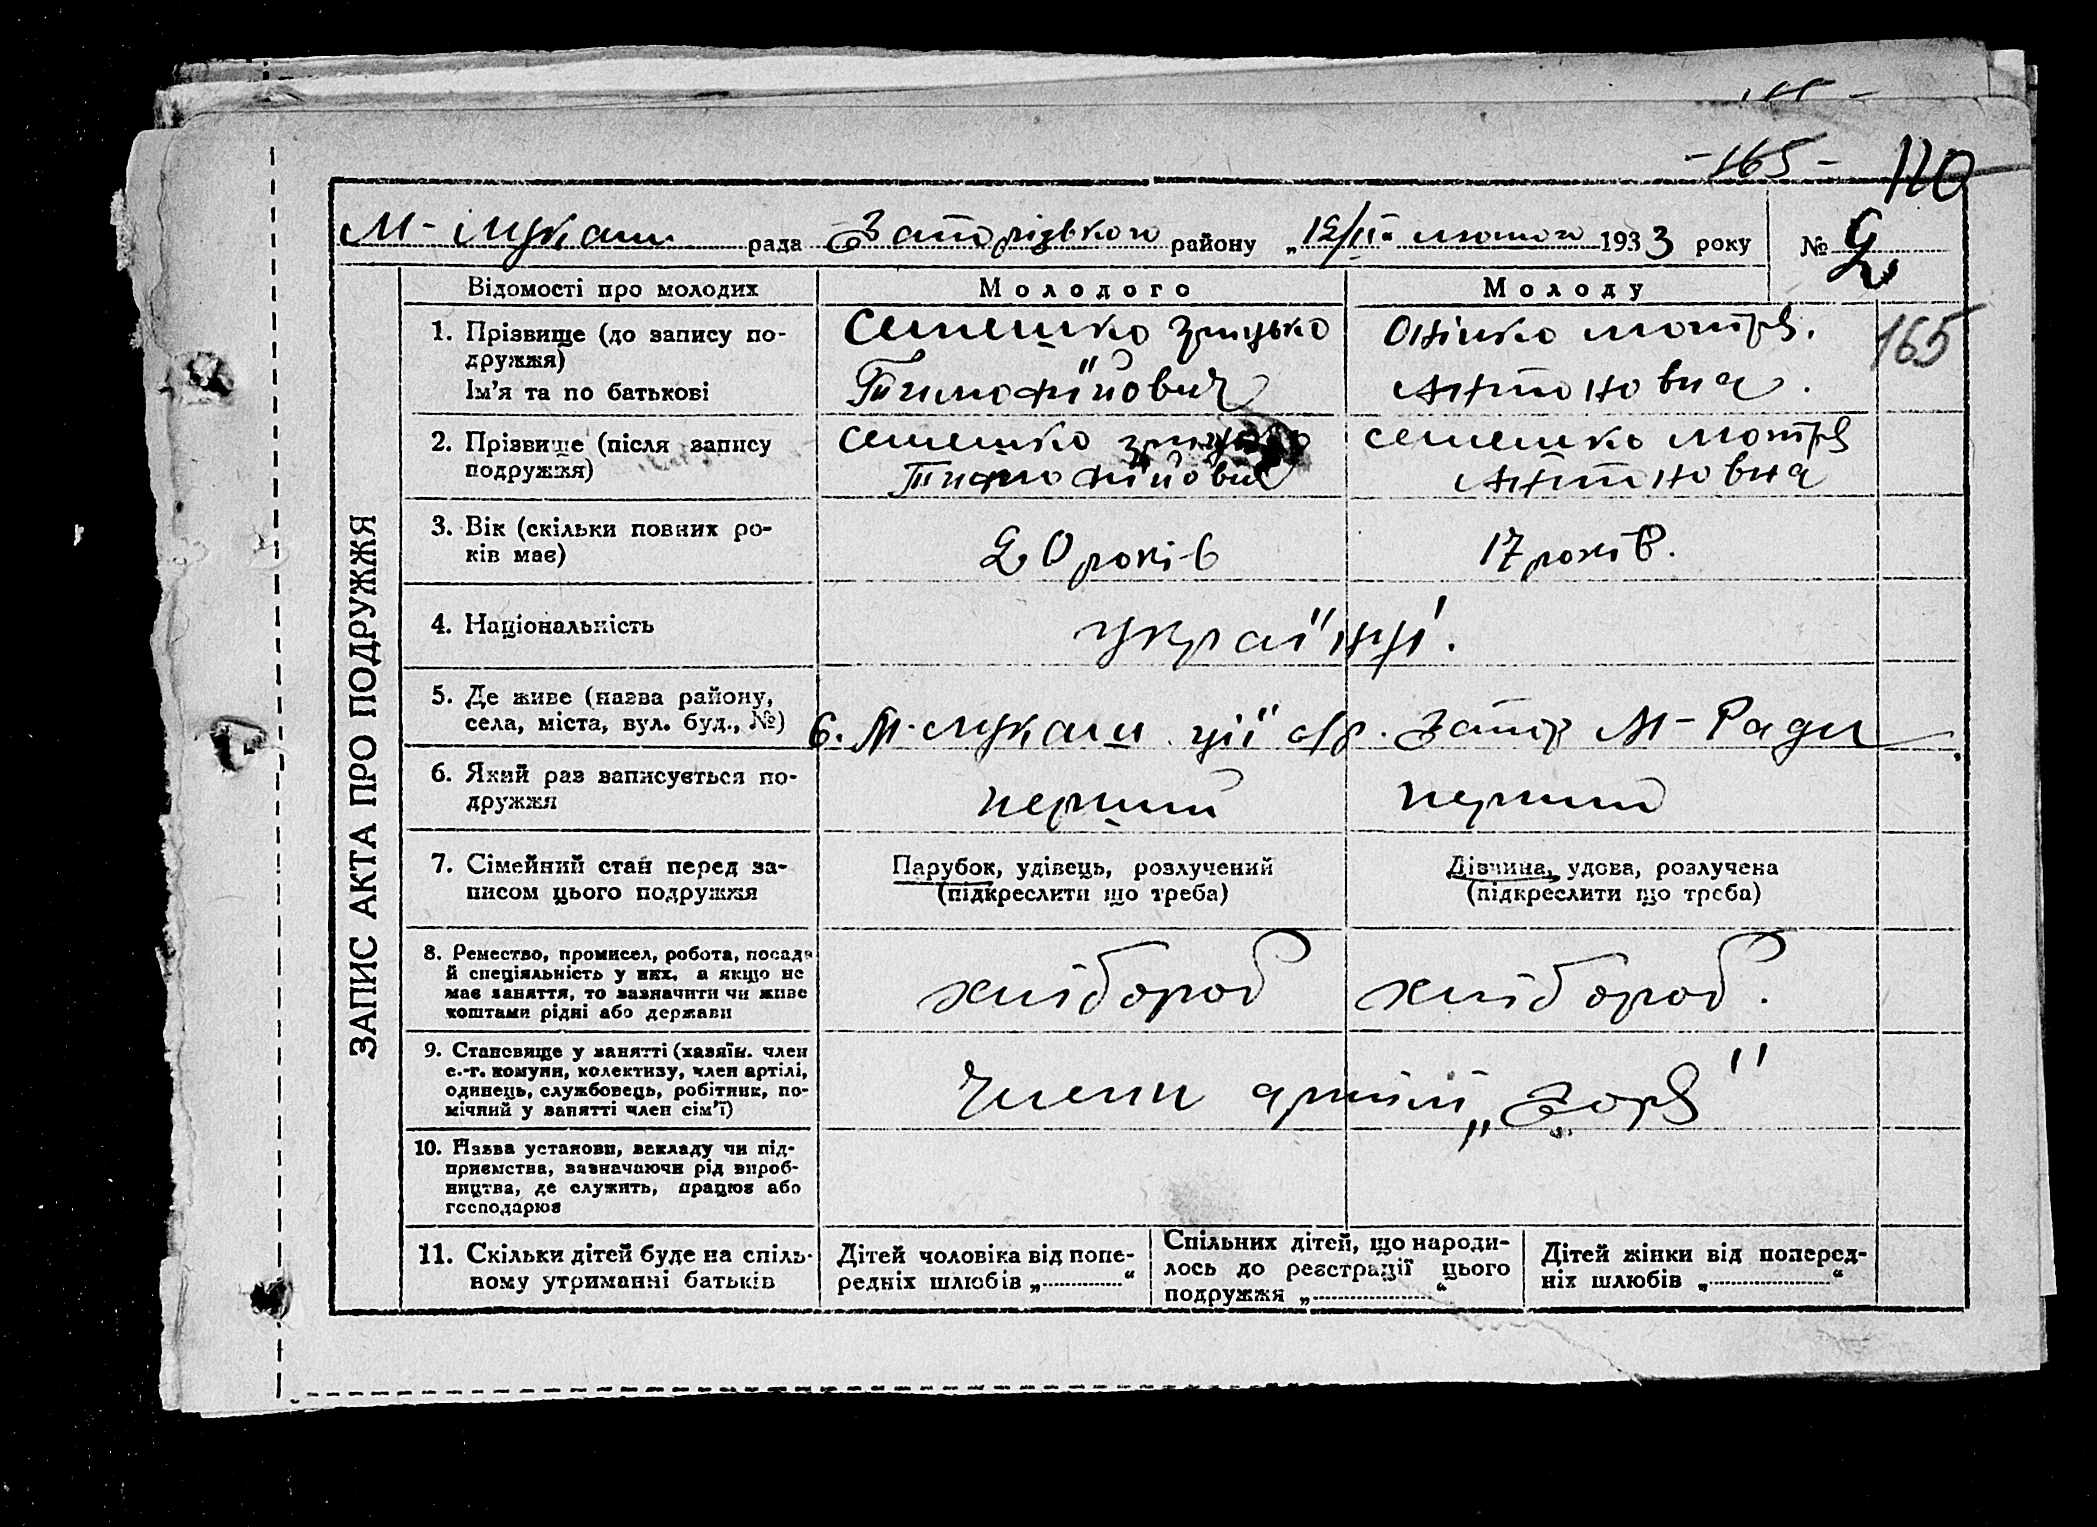 -165- 110
М-Лукаш. рада Запорізького району „12/II“ лютого 1933 року № 2
ЗАПИС АКТА ПРО ПОДРУЖЖЯ
Відомості про молодих Молодого Молоду
165
1. Прізвище (до запису по-
дружжя)
Ім'я та по батькові
Семешко Грицько
Тимофійович
Онішко Мотря.
Антоновна.
2. Прізвище (після запису
подружжя)
Семешко Грицько
Тимофійович
Семешко Мотря
Антоновна
3. Вік (скільки повних ро-
ків має)
20 років
17 років.
4. Національність
українці.
5. Де живе (назва району,
села, міста, вул. буд., №)
с. М-Лукаш ції с/р. Запор М-Ради
6. Який раз записується по-
дружжя
перший
перший
7. Сімейний стан перед за-
писом цього подружжя
Парубок, удівець, розлучений
(підкреслити що треба)
Дівчина, удова, розлучена
(підкреслити що треба)
8. Ремество, промисел, робота, посада
й спеціяльність у них, а якщо не
має заняття, то зазначити чи живе
коштами рідні або держави
хлібороб
хлібороб.
9. Становище у занятті (хазяїн, член
с.-г. комуни, колективу, член артілі,
одинець, службовець, робітник, по-
мічний у занятті член сім'ї)
Члени артілі „Зоря"
10. Назва установи, закладу чи під-
приємства, зазначаючи рід вироб-
ництва, де служить, працює або
господарює
11. Скільки дітей буде на спіль-
ному утриманні батьків
Дітей чоловіка від попе-
редніх шлюбів „ “
Спільних дітей, що народи-
лось до реєстрації цього
подружжя „ “
Дітей жінки від поперед-
ніх шлюбів „ “